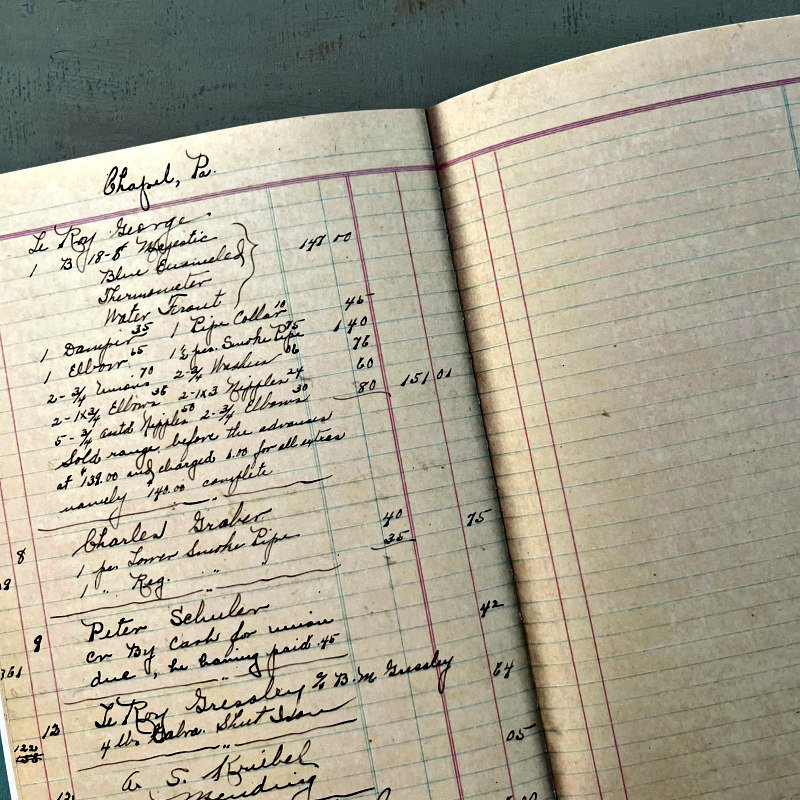 Chapel, Pa.
Le Roy George
1 B 18-8t Majestic 147 00
Blue Enameled
Thermometer
Water Front
1 Damper 35 1 Pipe Collar 10 45
1 Elbow 65 1 pcs. Smoke Pipe 75 1 40
2 - 3/4 Unions 70 2 - 3/4 Washers 06 76
2 - 1x3/4 Elbows 36 2 - 1x3 Nipples 24 60
5 - 3/4 astd Nipples 50 2 - 3/4 Elbows 30 80 151 01
Sold range before the advances
at $139.00 and charged 1.00 for all extras
namely $140.00 complete
8 Charles Graber
1 pc Lower Smoke Pipe 40 75
1 " Reg. " " 35
9 Peter Schuler
cr By Cash for union 42
due, he having paid .45
12 Le Roy Gressley % B. M Gressley
4 lbs Galva. Sheet Iron 64
122
A. S. Kriebel 05
Mending